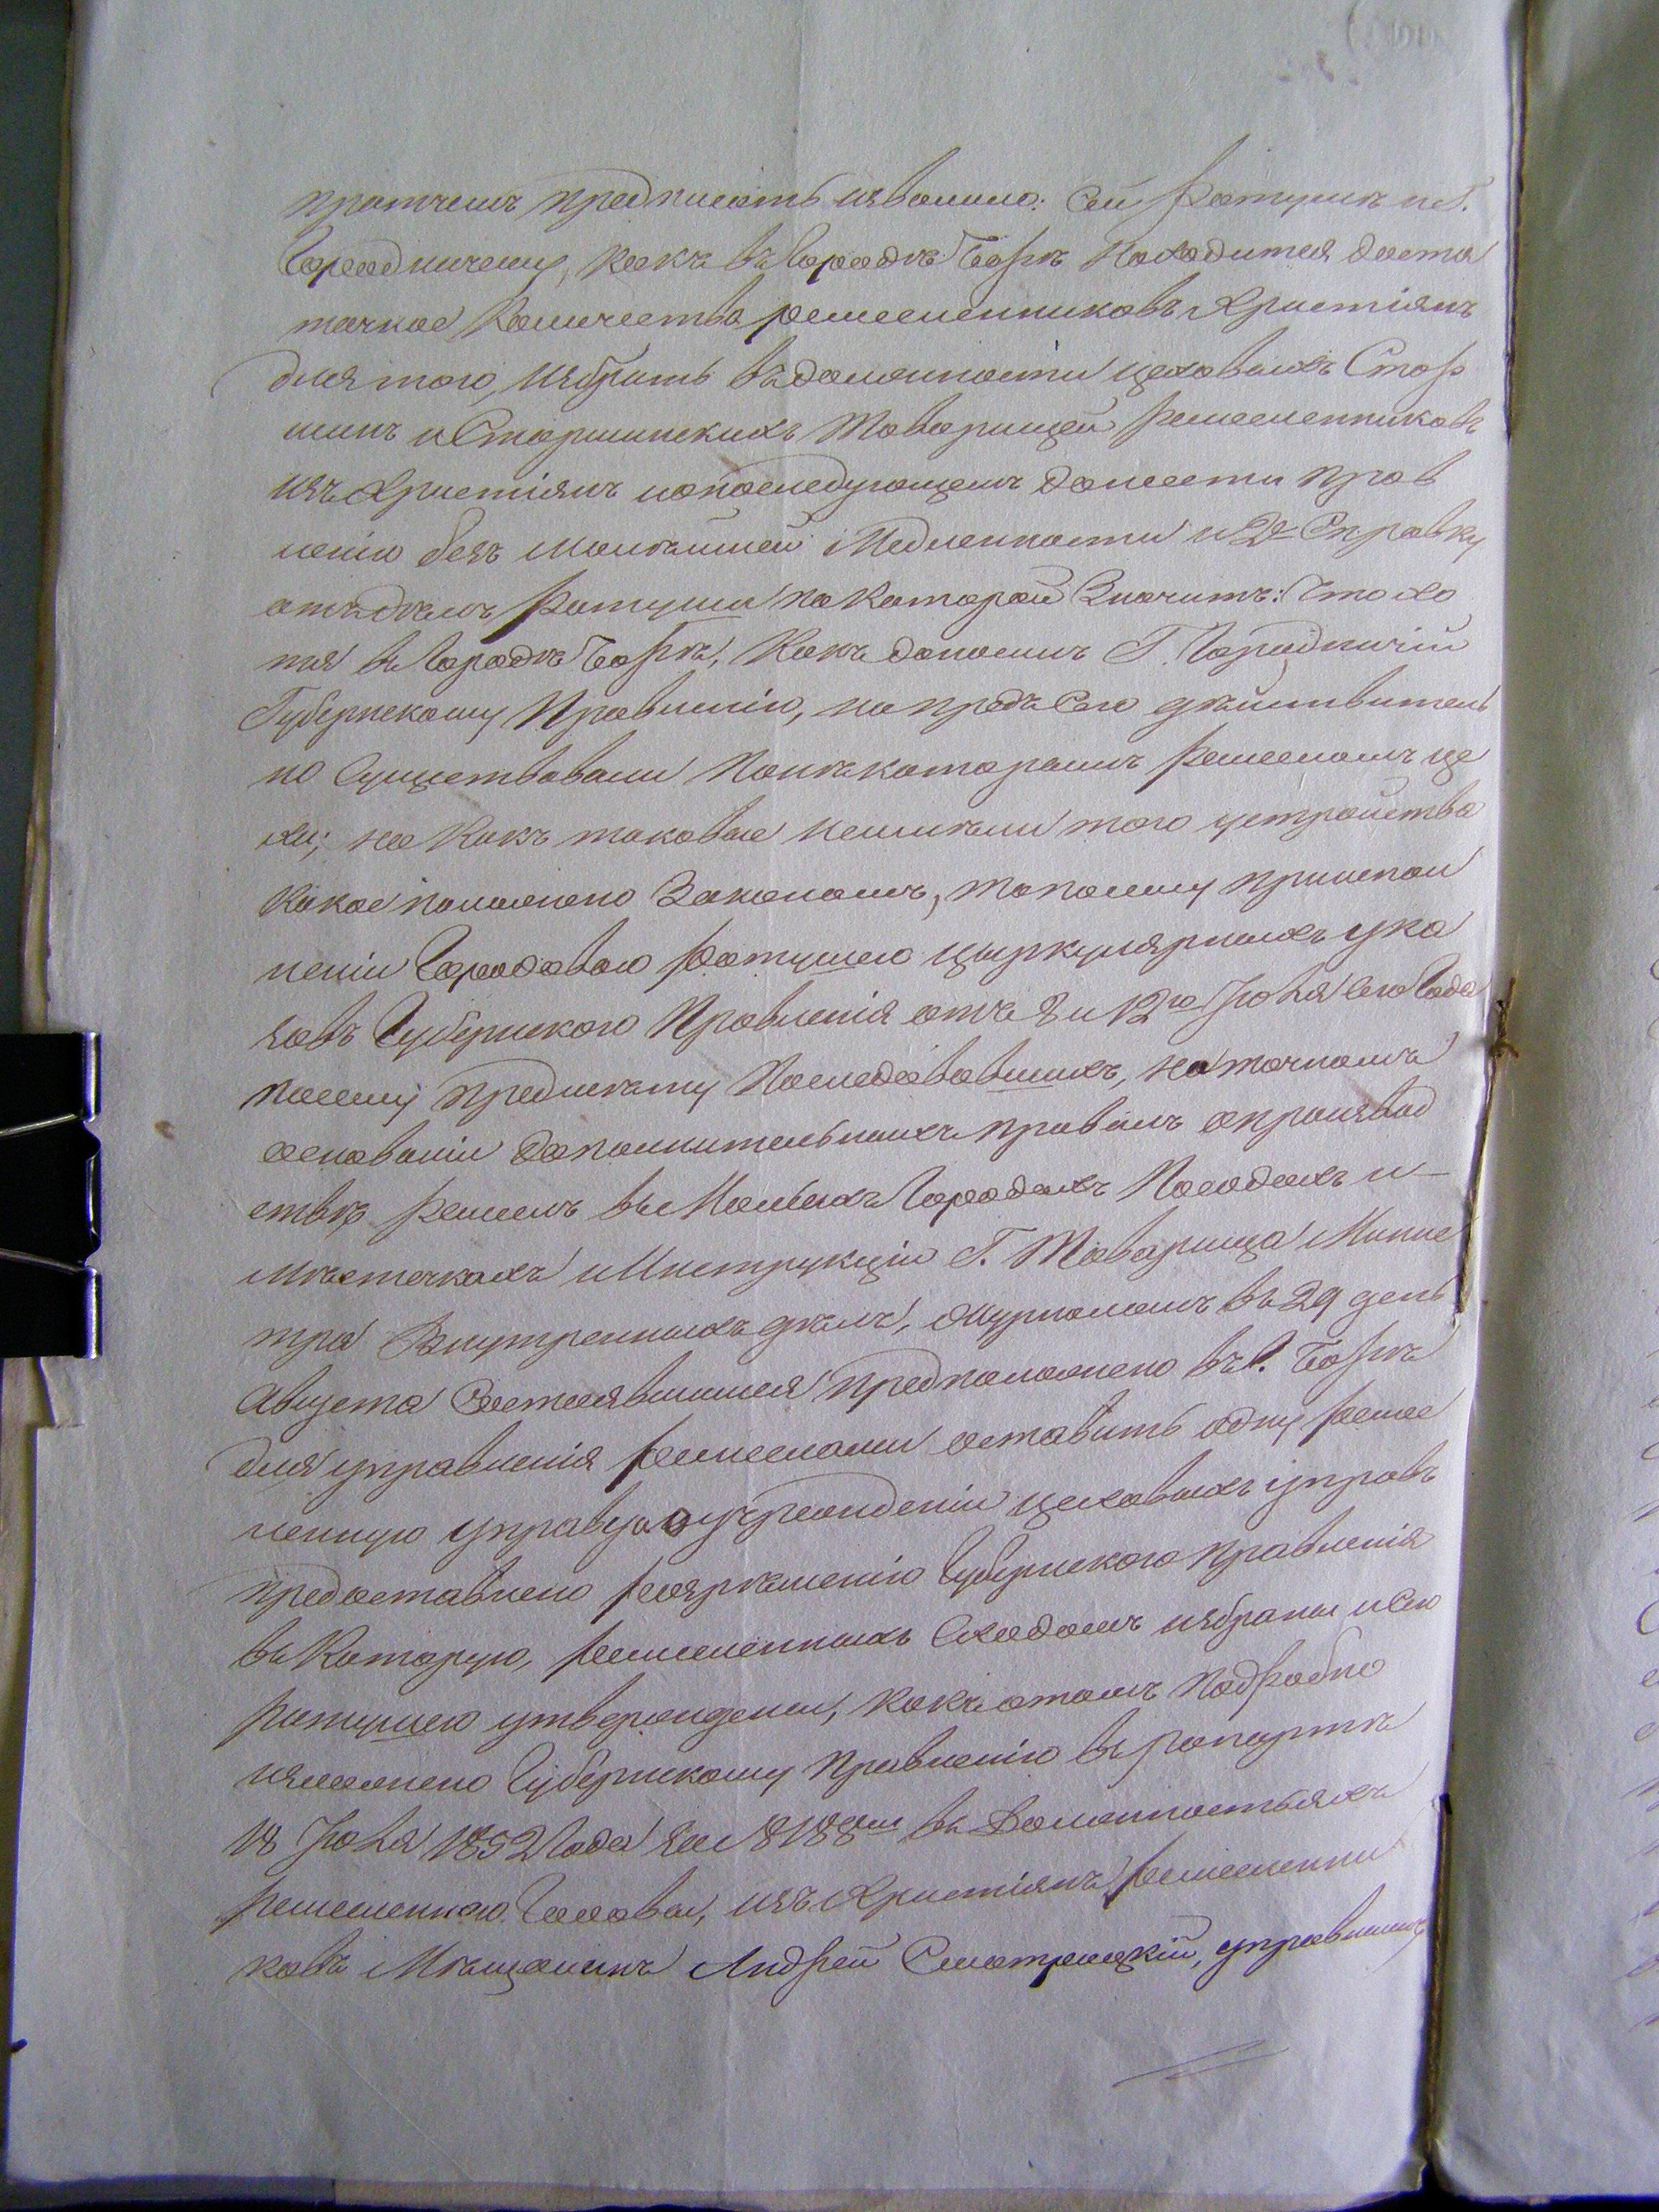 протчемъ предписать изволило: Сей Ратушѣ и Г.
Городничему, какъ въ Городѣ Барѣ находится доста
точное количество ремесленниковъ Христіянъ
для того, избрать въ должности цеховыхъ Стар
шинъ и Старшинскихъ Товарищей ремесленниковъ
изъ Христіянъ и о послѣдующемъ донести прав
ленію безъ малѣйшей Медленности и 2е Справку
отъ дѣлъ Ратуши по которой Значитъ: Что хо
тя въ Городѣ Барѣ, какъ доносилъ Г. Городничій
Губернскому Правленію, на предъ Сего дѣйствитель
но Существовали по нѣкоторымъ ремесламъ це
хи; но какъ таковые неимѣли того устройства
какое положено Закономъ, то по сему при испол
неніи Городовою Ратушею циркулярныхъ ука
зовъ Губернского Правленія отъ 8 и 12го Іюля сего Года
по сему предмету Последовавшихъ, на точномъ
основаніи дополнительныхъ правилъ о производ
ствѣ ремеслъ въ Малыхъ Городахъ Посадахъ и
мѣстечкахъ и Инструкціи Г. Товарища Минис
тра Внутреннихъ дѣлъ, Журналомъ въ 29 день
Августа Состоявшимся предположено въ Г. Барѣ
для управленія ремеслами оставить одну ремес
ленную управу а о учрежденіи цеховыхъ управъ
предоставлено разрѣшенію Губернского Правленія
въ Которую, ремесленнымъ Сходомъ избраны и Сею
ратушею утверждены, какъ о томъ подробно
изложено Губернскому Правленію въ рапортѣ
18 Іюля 1852 Года за № 8188мъ въ Должностяхъ
ремесленного Головы, изъ Христіянъ ремесленни
ковъ Мѣщанинъ Андрей Смотрицкій, управныхъ